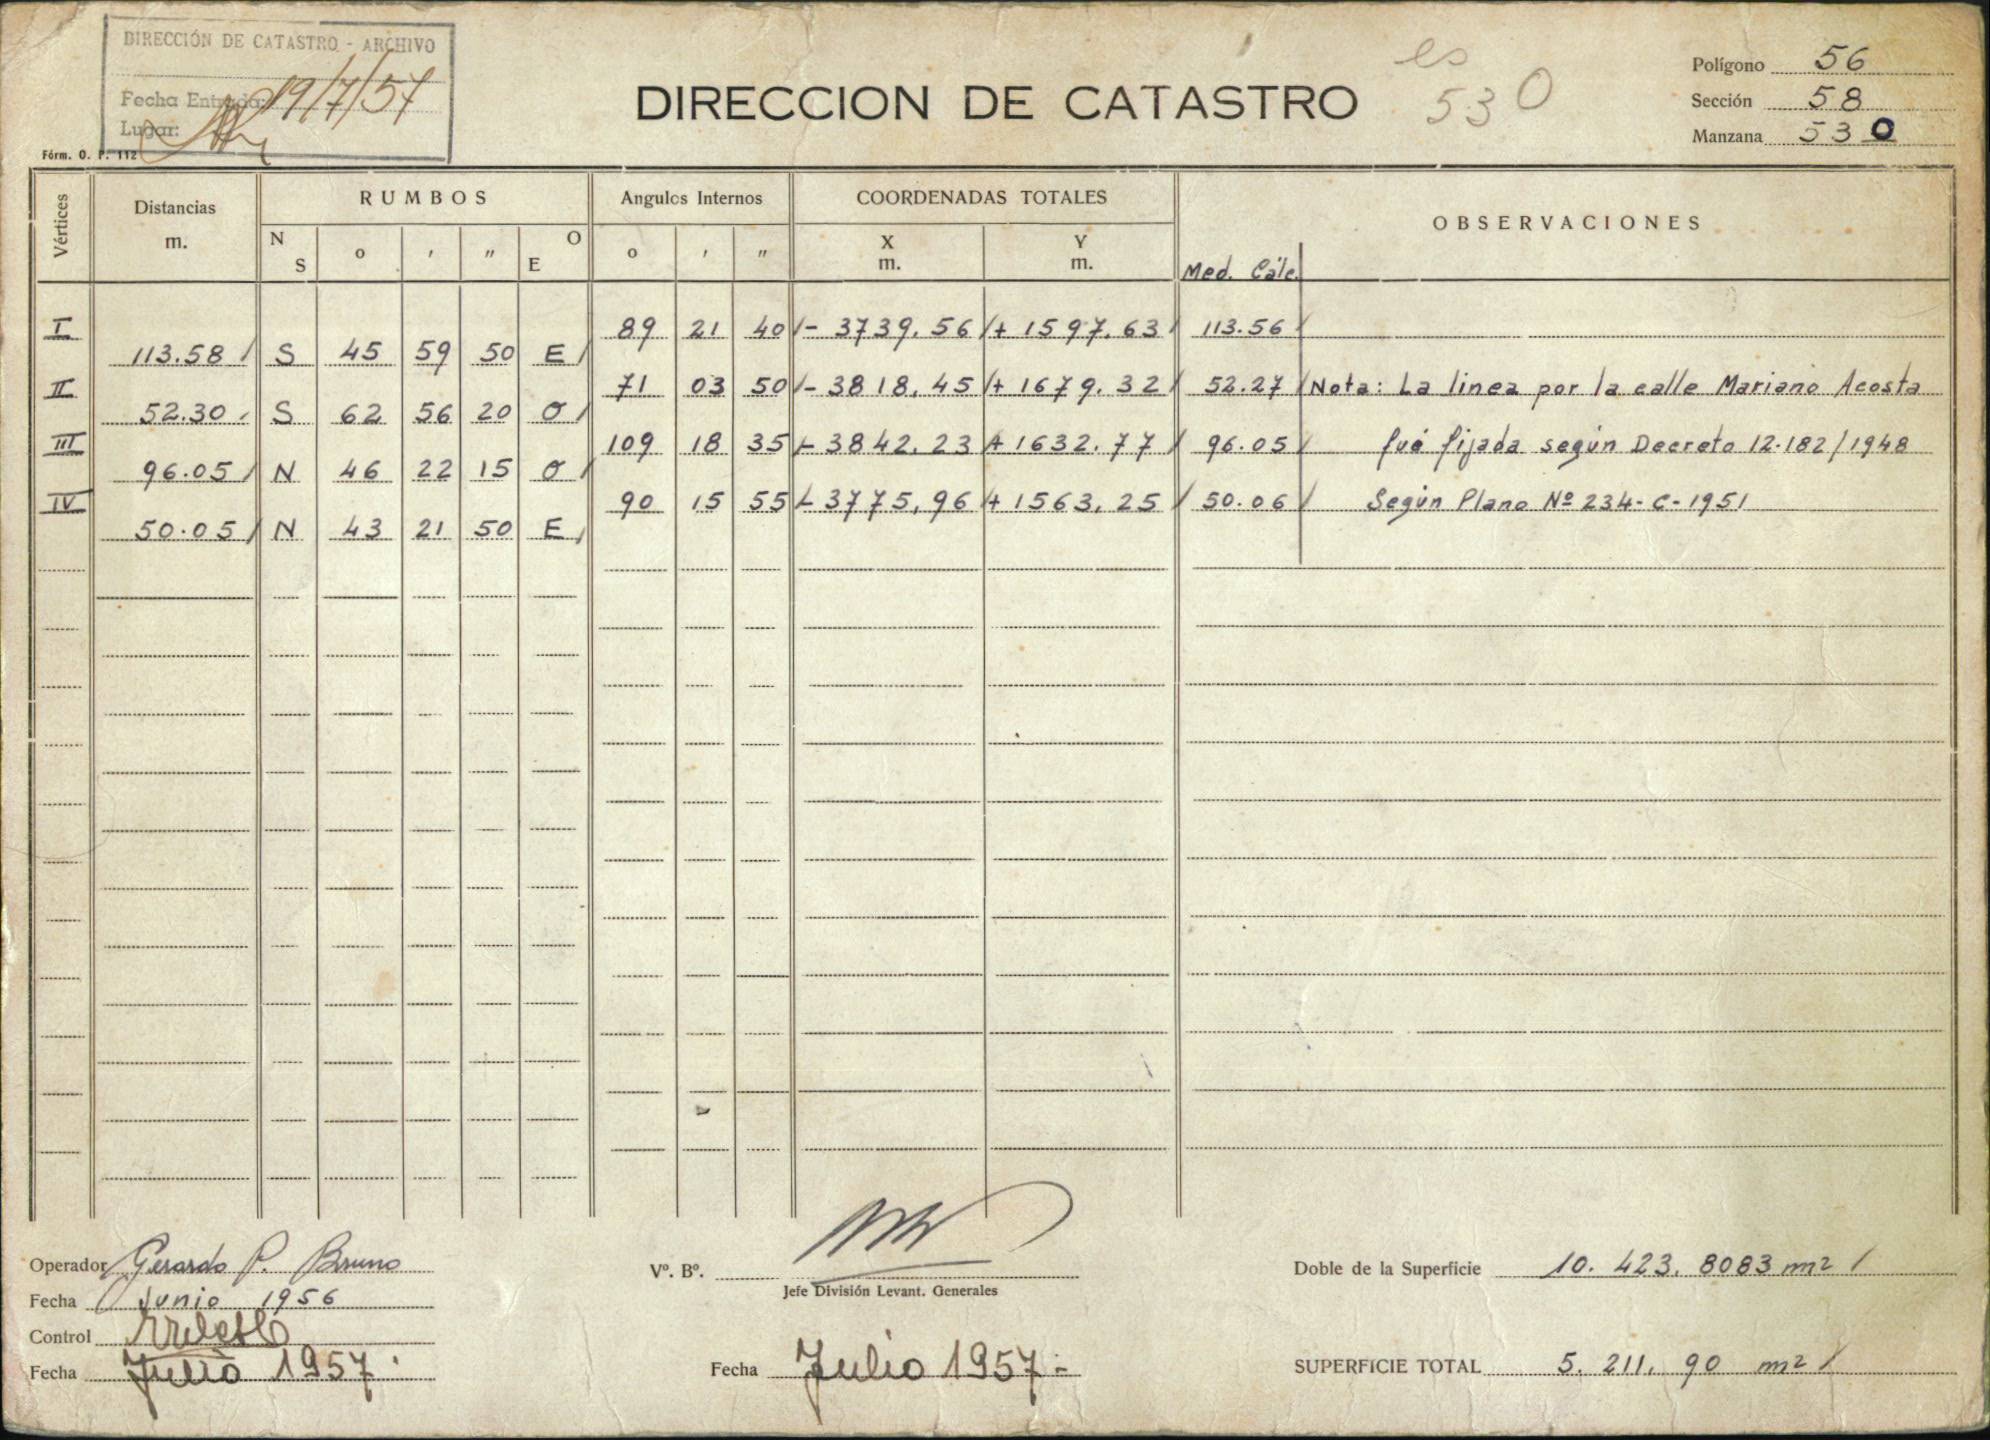 DIRECCIÓN DE CATASTRO - ARCHIVO
Fecha Entrada: 19/7/57
Lugar:
Fórm. O. P. 112
DIRECCION DE CATASTRO
es
530
Polígono 56
Sección 58
Manzana 530
Vértices
Distancias
m.
RUMBOS
N S ° ' " O E
Angulos Internos
° ' "
COORDENADAS TOTALES
X m. Y m.
Med. Cálc.
OBSERVACIONES
I 89 21 40 - 3739,56 + 1597,63 113.56
113.58 S 45 59 50 E
II 71 03 50 - 3818,45 + 1679,32 52.27 Nota: La linea por la calle Mariano Acosta
52.30 S 62 56 20 O
III 109 18 35 - 3842,23 + 1632,77 96.05 fué fijada según Decreto 12.182/1948
96.05 N 46 22 15 O
IV 90 15 55 - 3775,96 + 1563,25 50.06 Según Plano Nº 234-C-1951
50.05 N 43 21 50 E
Operador Gerardo P. Bruno
Fecha Junio 1956
Control
Fecha Julio 1957.
Vº. Bº.
Jefe División Levant. Generales
Fecha Julio 1957.-
Doble de la Superficie 10.423,8083 m2
SUPERFICIE TOTAL 5.211,90 m2